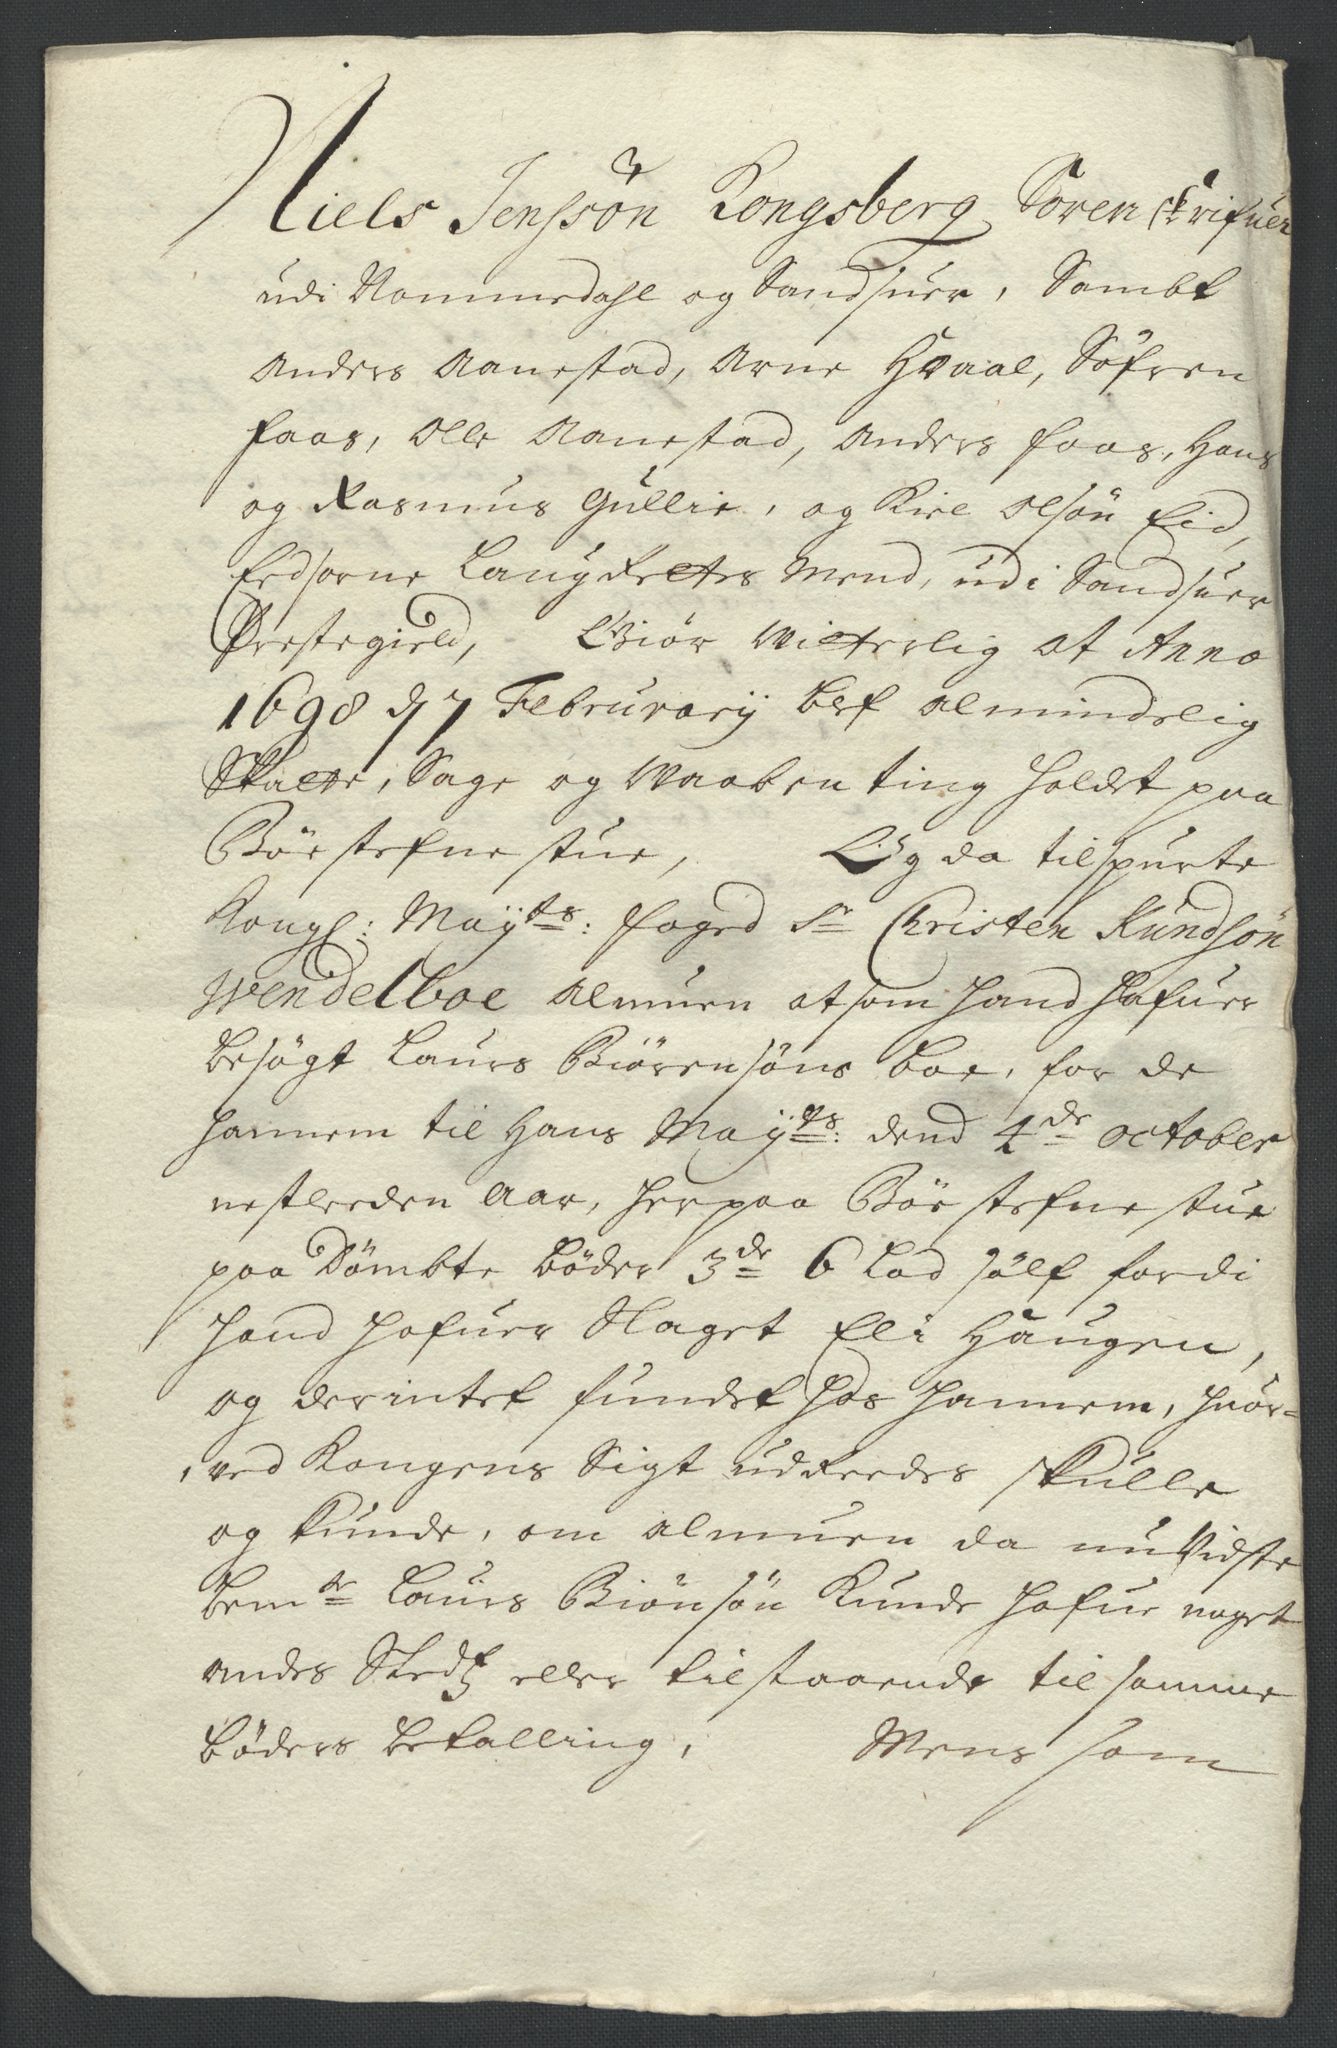 Niels Jensşön Kongsberg Sorenskrifuer
udi Nommedahl og Sandsuer, Sambt
Anders Aanestad, Arne Hvaal, Söfren
faas, Olle Aanestad, Anders faas, Hans
og Rasmus Gullie, og Kiel Olsön Eid,
Eedsorne LaugRettes Mend, udi Sandsuer
Præstegield, Giör Witterlig at Anno
1698 d 7 Februrarij blef almindelig
Skatte, Sage og Waaben ting holdet paa
Böe stefne stue, Og da tilspurte
Kongl: Maÿts: foged Sr Christen Knudsön
Wendelboe Almuen at som hand hafuer
besögt Laurs Biörensöns boe, for de
hannem til Hans Maÿts: dend 4de October
nestleeden Aar, her paa Böe stefne stue
paa Dömbte böder 3de 6 Lod sölf fordi
hand hafuer Slaget Eli Haugen,
og der intet fundet hos hannem, huor-
ved Kongens Sigt udReedes skulle
og kunde, om almuen da nu Vidste
bemte Laurs Biönsön Kunde hafue noget
andes Stedtz eller tilstaaende til samme
böders betalling, Mens som